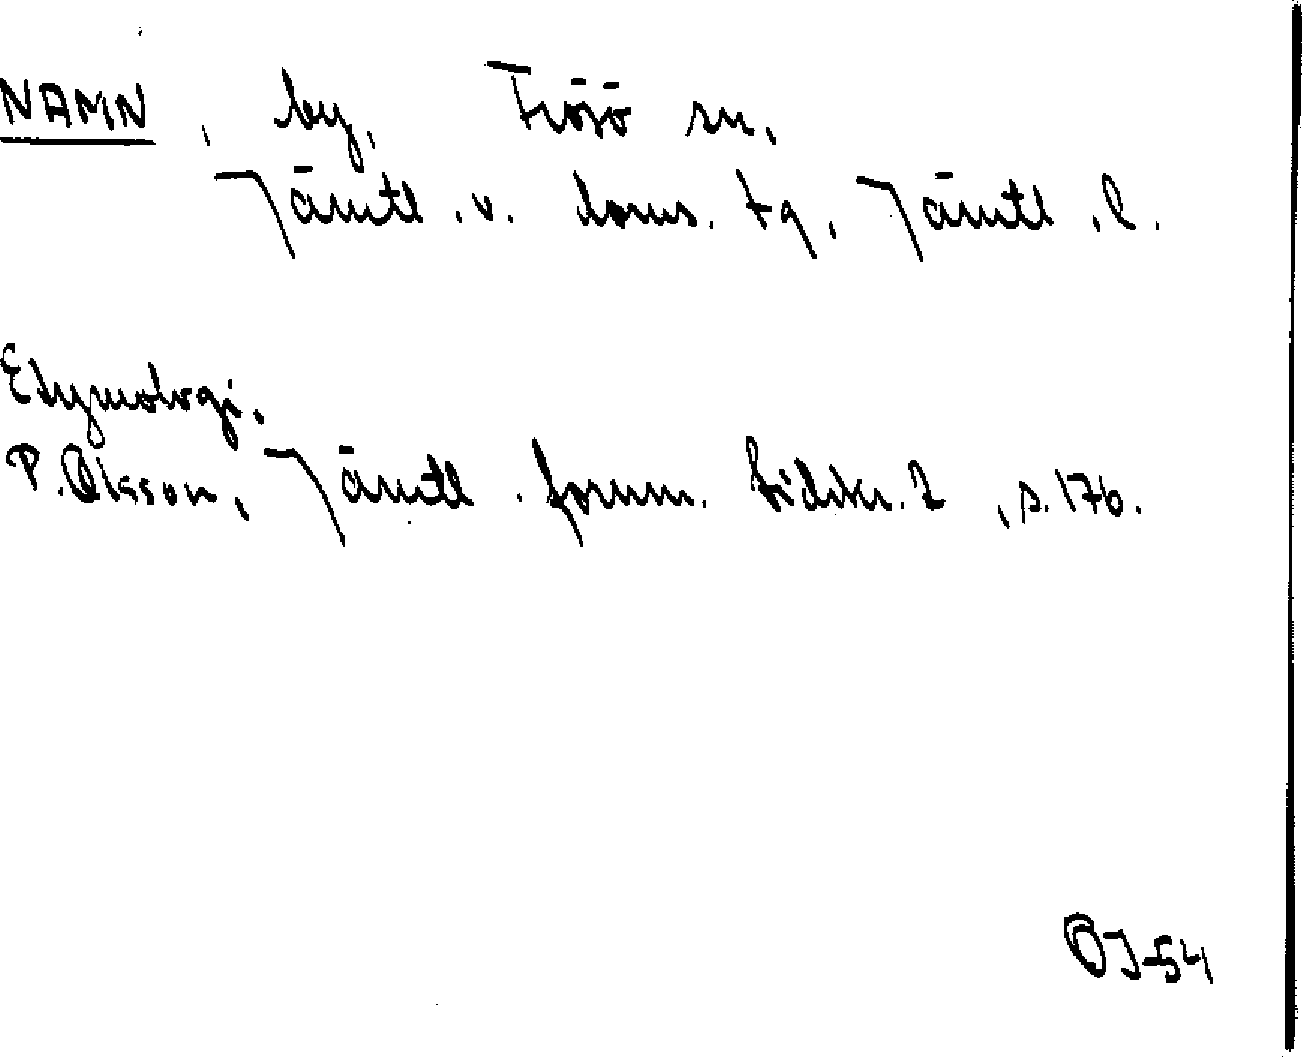 NAMN, by, Frösö sn,
Jämtl. v. doms. tg, Jämtl. l.
Etymologi.
P. Olsson, Jämtl. fornm. tidskr. 2, s. 176.
OJ-54